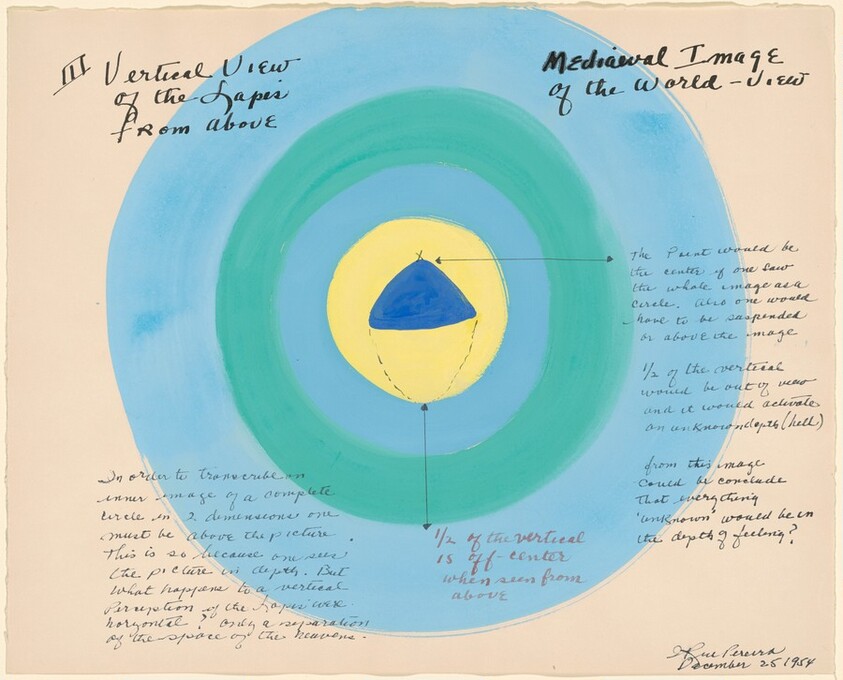 III Vertical View
of the Lapis
from above
Mediaeval Image
of the World-View
The Point would be
the center if one saw
the whole image as a
circle. Also one would
have to be suspended
or above the image
1/2 of the vertical
would be out of view
and it would activate
an unknown depth (hell)
from this image
could be conclude
that everything
"unknown" would be in
the depth of feeling?
In order to transcribe an
inner image of a complete
circle in 2 dimensions one
must be above the picture.
This is so because one sees
the picture in depth. But
what happens to a vertical
Perception if the Lapis were
horizontal? Only a separation
of the space of the heavens.
1/2 of the vertical
is off-center
when seen from
above
I Rice Pereira
December 25 1954